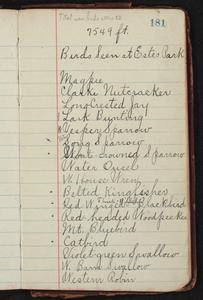 181
7549 ft.
Birds Seen at Estes Park
Magpie
Clarke Nutcracker
Long Crested Jay
Lark Bunting
Vesper Sparrow
Song Sparrow
White crowned Sparrow
Water Ousel
W. House Wren
Belted Kingfisher
Red Winged Blackbird
Red headed Woodpecker
Mt. Bluebird
Catbird
Violet-green Swallow
W. Barn Swallow
Western Robin